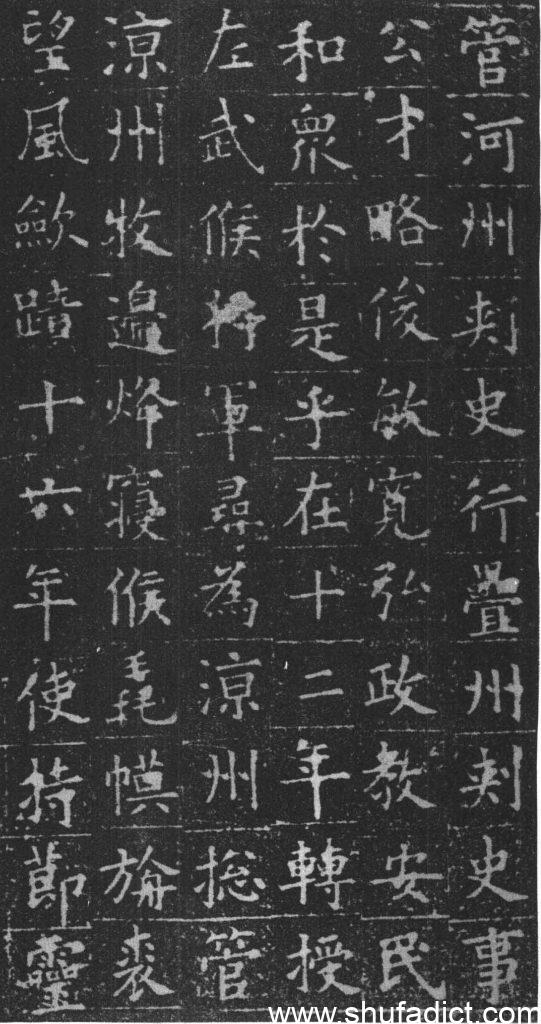 管河州刺史行疊州刺史事
公才略俊敏寬弘政教安民
和衆於是乎在十二年轉授
左武候將軍尋為涼州捴管
涼州牧邊烽寢候毳幙旃裘
望風歛蹟十六年使持節靈
www.shufadict.com